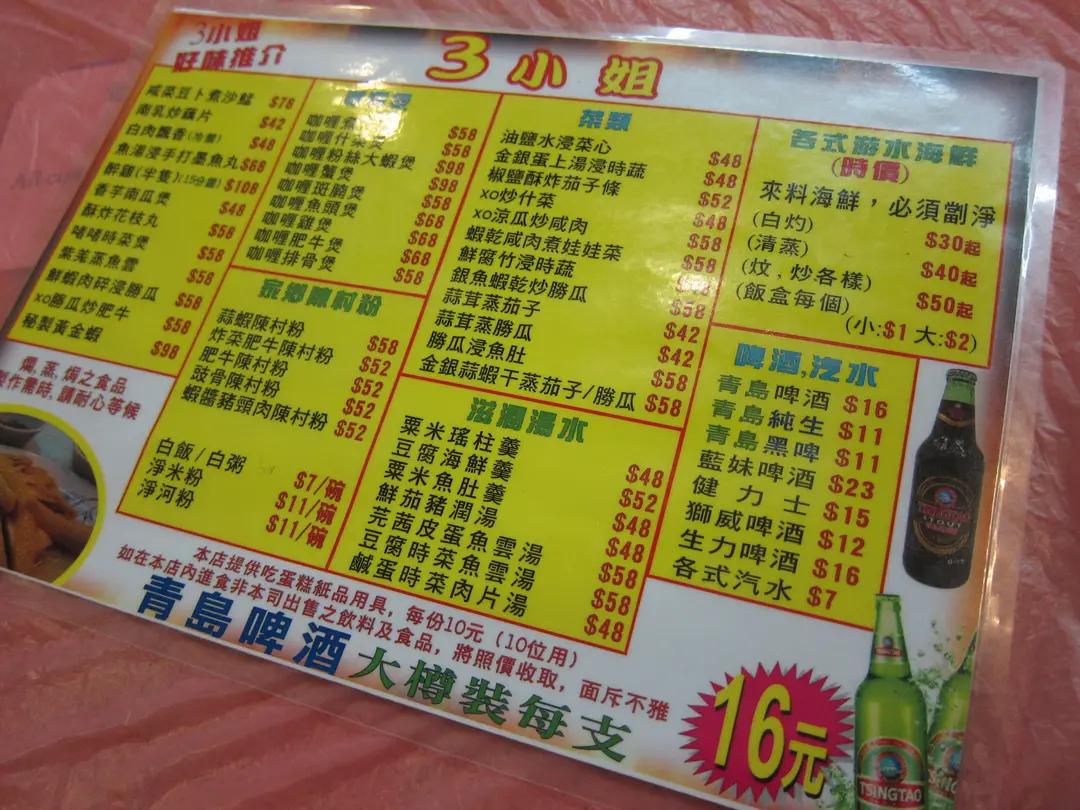 3小姐
好味推介
3小姐
咸菜豆卜煮沙鯭 $78
南乳炒藕片 $42
白肉飄香(冷盤) $48
魚湯浸手打墨魚丸 $68
醉雞(半隻)(15分鐘) $108
香芋南瓜煲 $48
酥炸花枝丸 $58
啫啫時菜煲
紫羌蒸魚雲 $58
鮮蝦肉碎浸勝瓜 $58
xo勝瓜炒肥牛 $58
秘製黃金蝦 $98
爛,蒸,焗之食品
製作需時,請耐心等候
咖喱什菜煲 $58
咖喱粉絲大蝦煲 $98
咖喱蟹煲 $98
咖喱斑腩煲 $58
咖喱魚頭煲 $68
咖喱雞煲 $68
咖喱肥牛煲 $68
咖喱排骨煲 $58
家鄉陳村粉
蒜蝦陳村粉 $58
炸菜肥牛陳村粉 $52
肥牛陳村粉 $52
豉骨陳村粉 $52
蝦醬豬頸肉陳村粉 $52
白飯/白粥 $7/碗
淨米粉 $11/碗
淨河粉 $11/碗
菜類
油鹽水浸菜心 $48
金銀蛋上湯浸時蔬 $48
椒鹽酥炸茄子條 $52
xo炒什菜 $48
xo涼瓜炒咸肉 $58
蝦乾咸肉煮娃娃菜 $58
鮮腐竹浸時蔬
銀魚蝦乾炒勝瓜 $58
蒜茸蒸茄子 $42
蒜茸蒸勝瓜 $42
勝瓜浸魚肚 $58
金銀蒜蝦干蒸茄子/勝瓜 $58
滋潤湯水
粟米瑤柱羹 $48
豆腐海鮮羹 $52
粟米魚肚羹 $48
鮮茄豬潤湯 $48
芫茜皮蛋魚雲湯 $58
豆腐時菜魚雲湯 $58
鹹蛋時菜肉片湯 $48
各式游水海鮮
(時價)
來料海鮮,必須劏淨
(白灼) $30起
(清蒸) $40起
(炆,炒各樣) $50起
(飯盒每個)
(小:$1 大:$2)
啤酒,汽水
青島啤酒 $16
青島純生 $11
青島黑啤 $11
藍妹啤酒 $23
健力士 $15
獅威啤酒 $12
生力啤酒 $16
各式汽水 $7
本店提供吃蛋糕紙品用具,每份10元(10位用)
如在本店內進食非本司出售之飲料及食品,將照價收取,面斥不雅
青島啤酒大樽裝每支
16元
STOUT
TSINGTAO